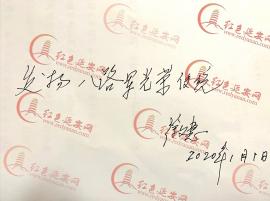 发扬八路军光荣传统
2020年1月1日
红色延安网